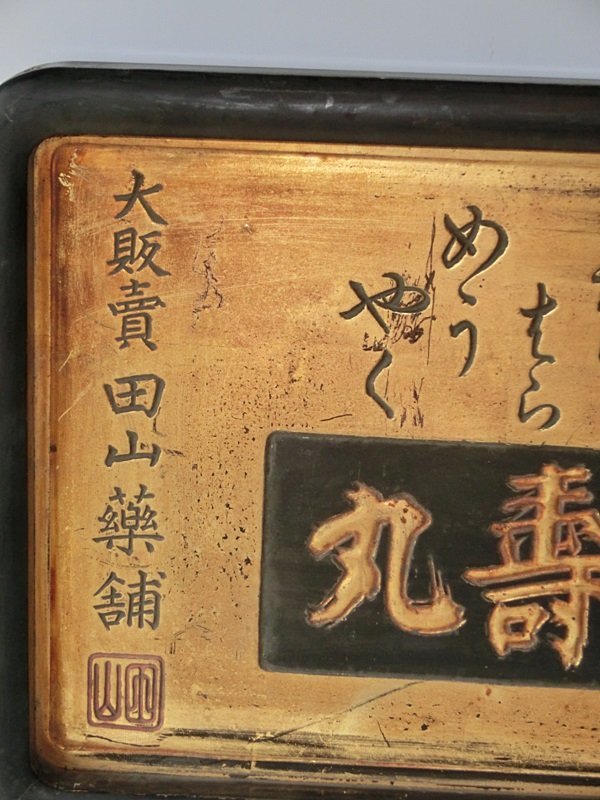 はら
めう
やく
壽丸
大販賣 田山藥舖
田山